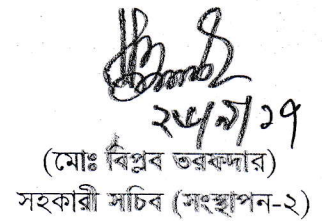 ২৫/৯/১৭
(মোঃ বিপ্লব তরফদার)
সহকারী সচিব (সংস্থাপন-২)